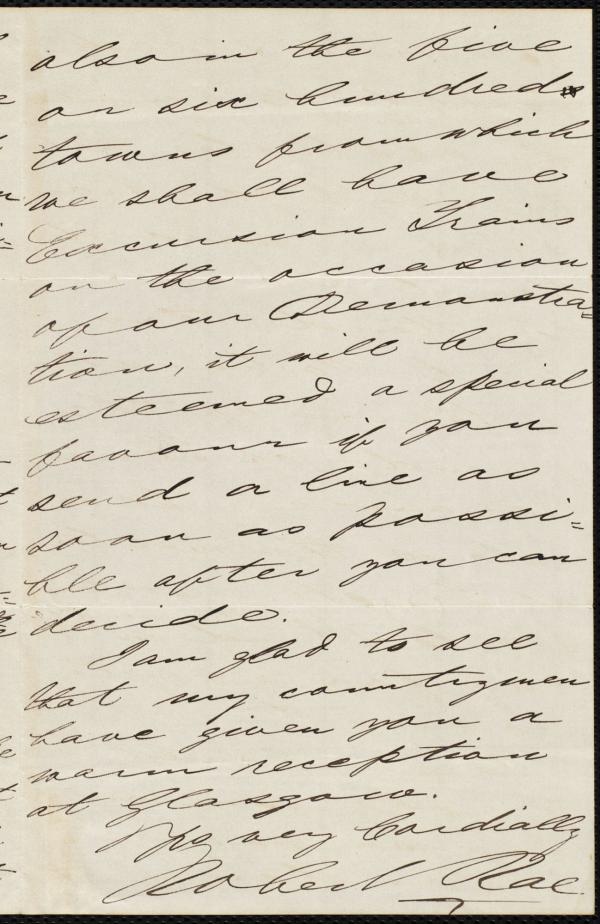 also in the five
or six hundred
towns from which
we shall have
Excursion Trains
on the occasion
of our Demonstra=
tion, it will be
esteemed a special
favour if you
send a line as
soon as possi=
ble after you can
decide.
I am glad to see
that my countrymen
have given you a
warm reception
at Glasgow.
Yrs very Cordially
Robert Rae